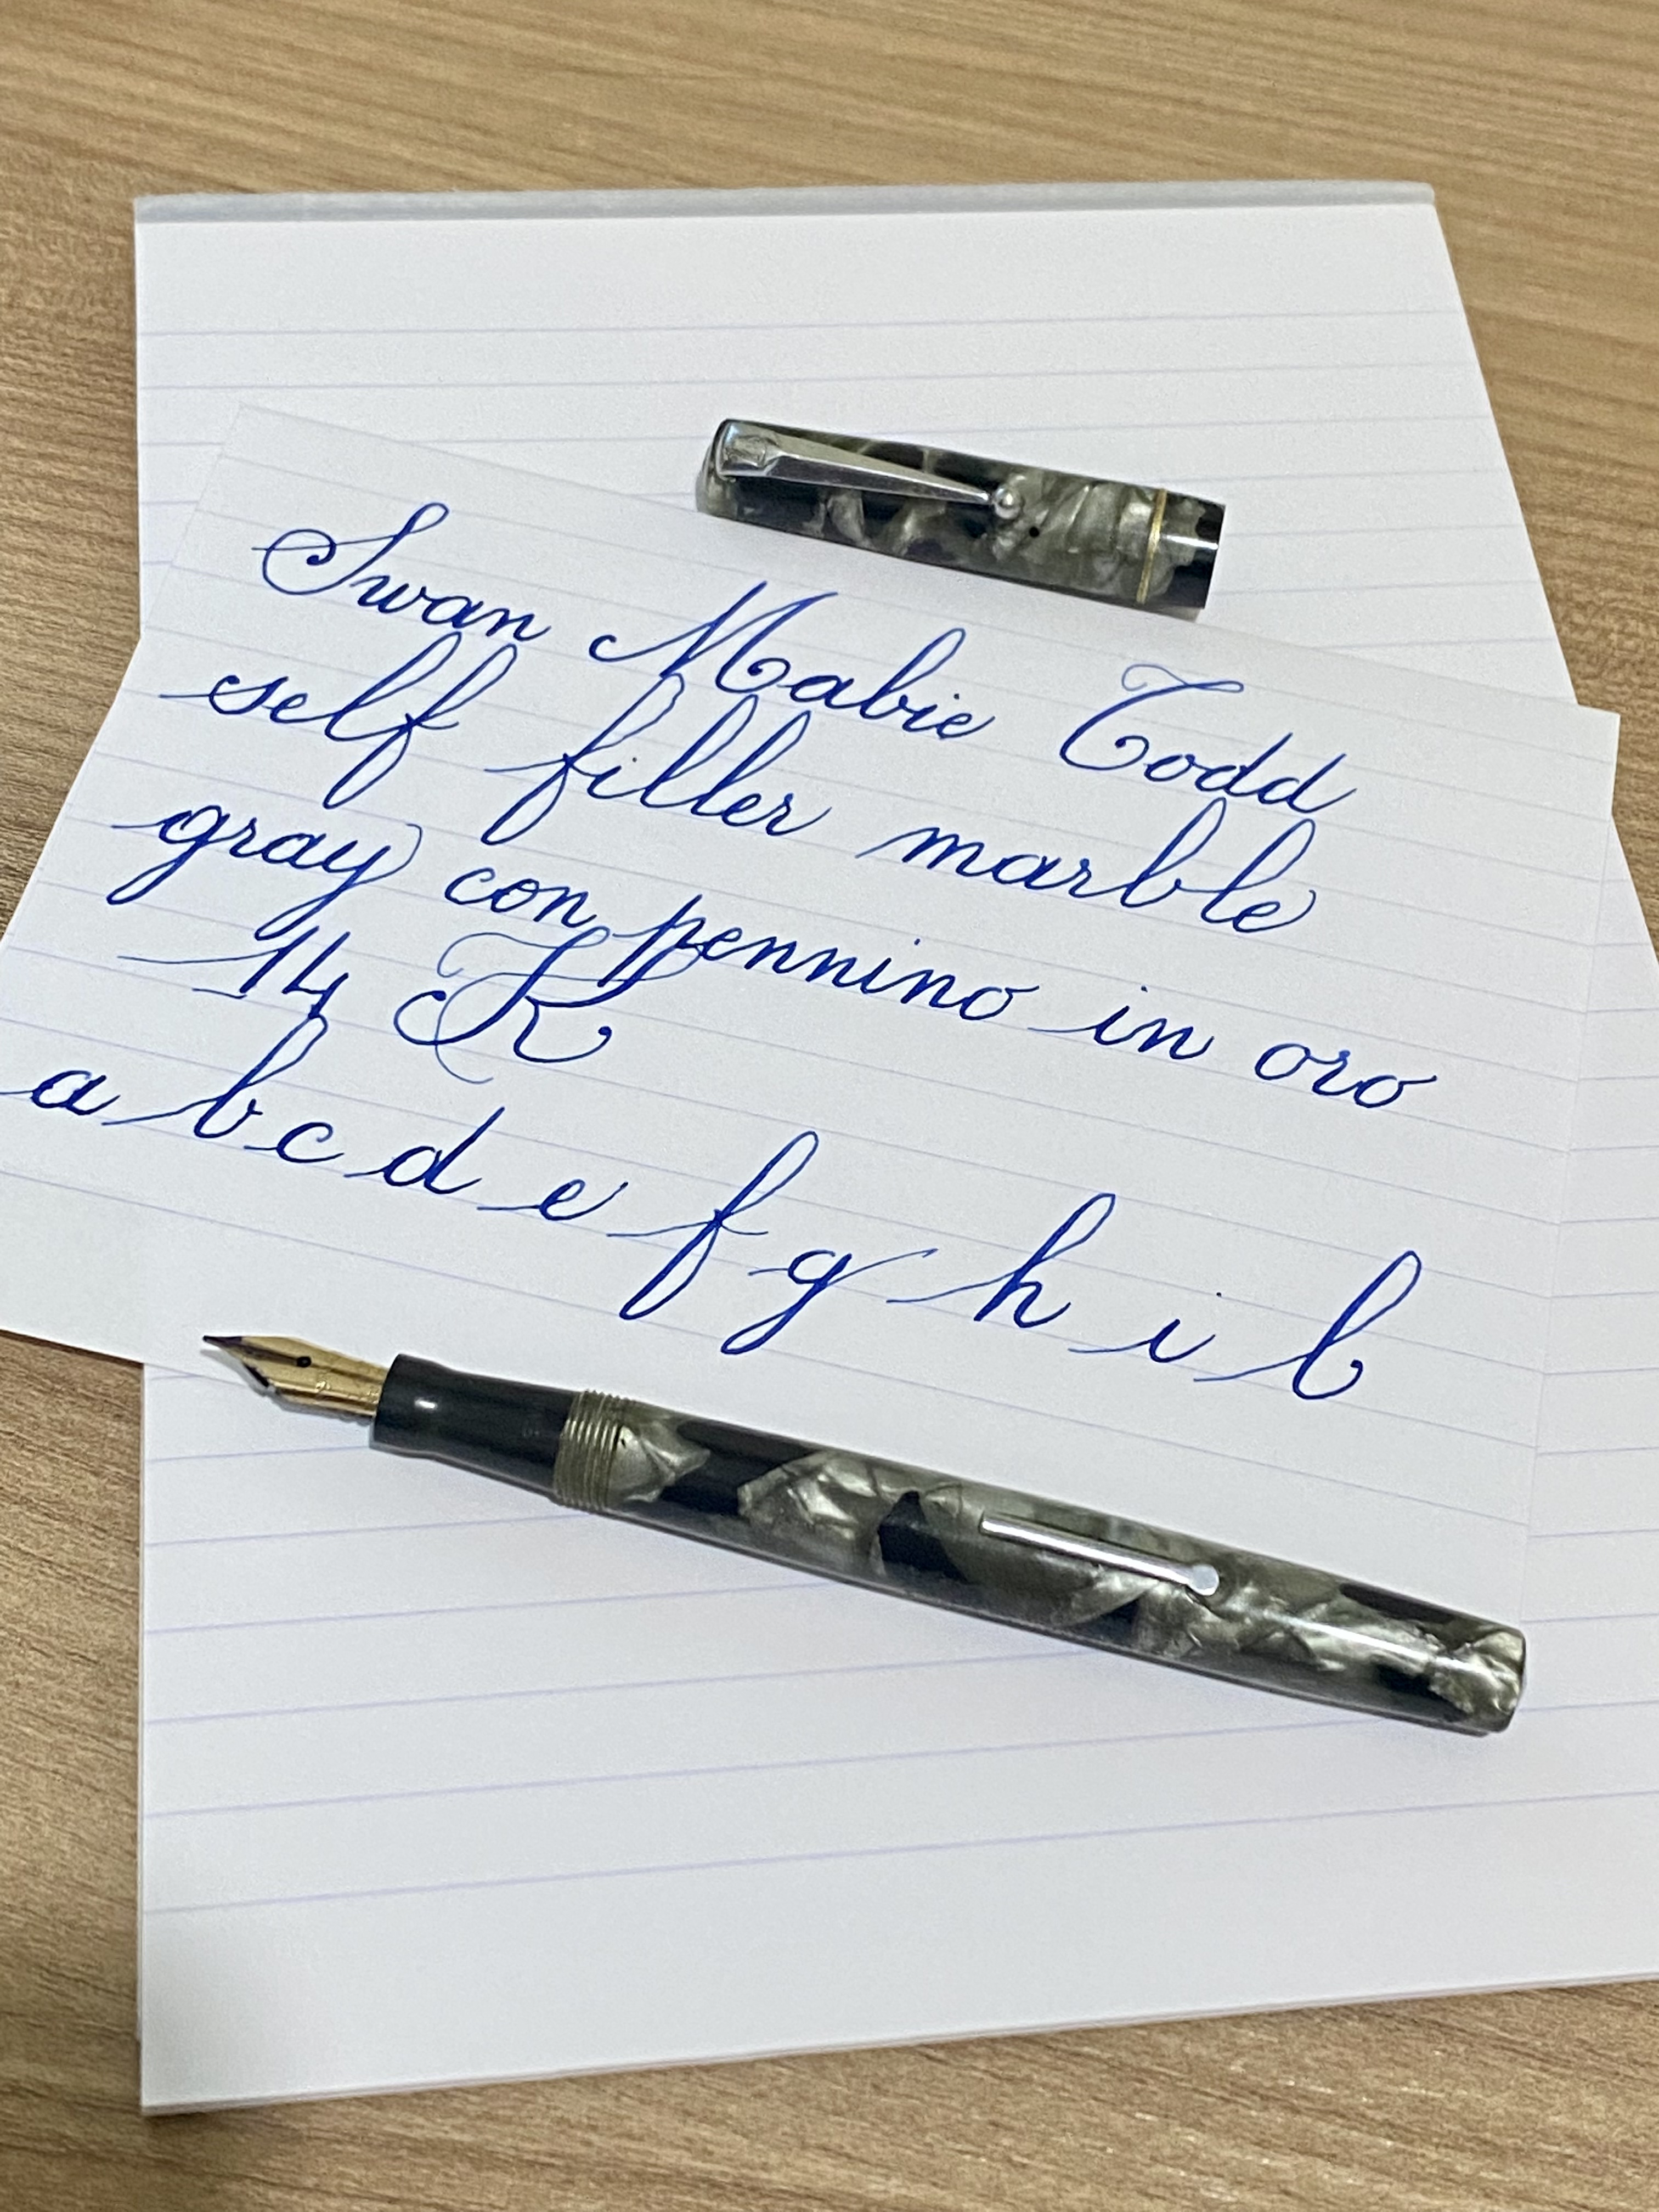 Swan Mabie Todd
self filler marble
gray con pennino in oro
14 K
a b c d e f g h i b